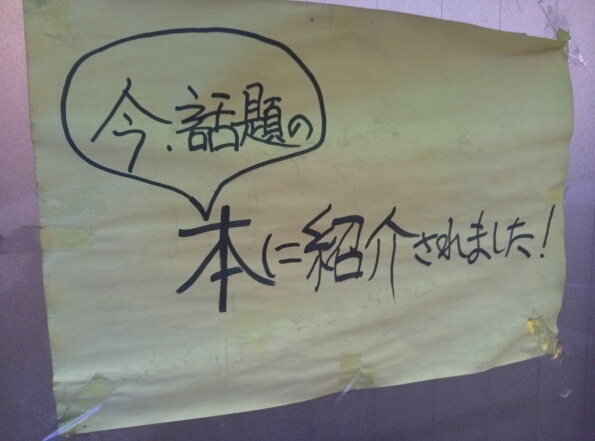 今、話題の
本に紹介されました!